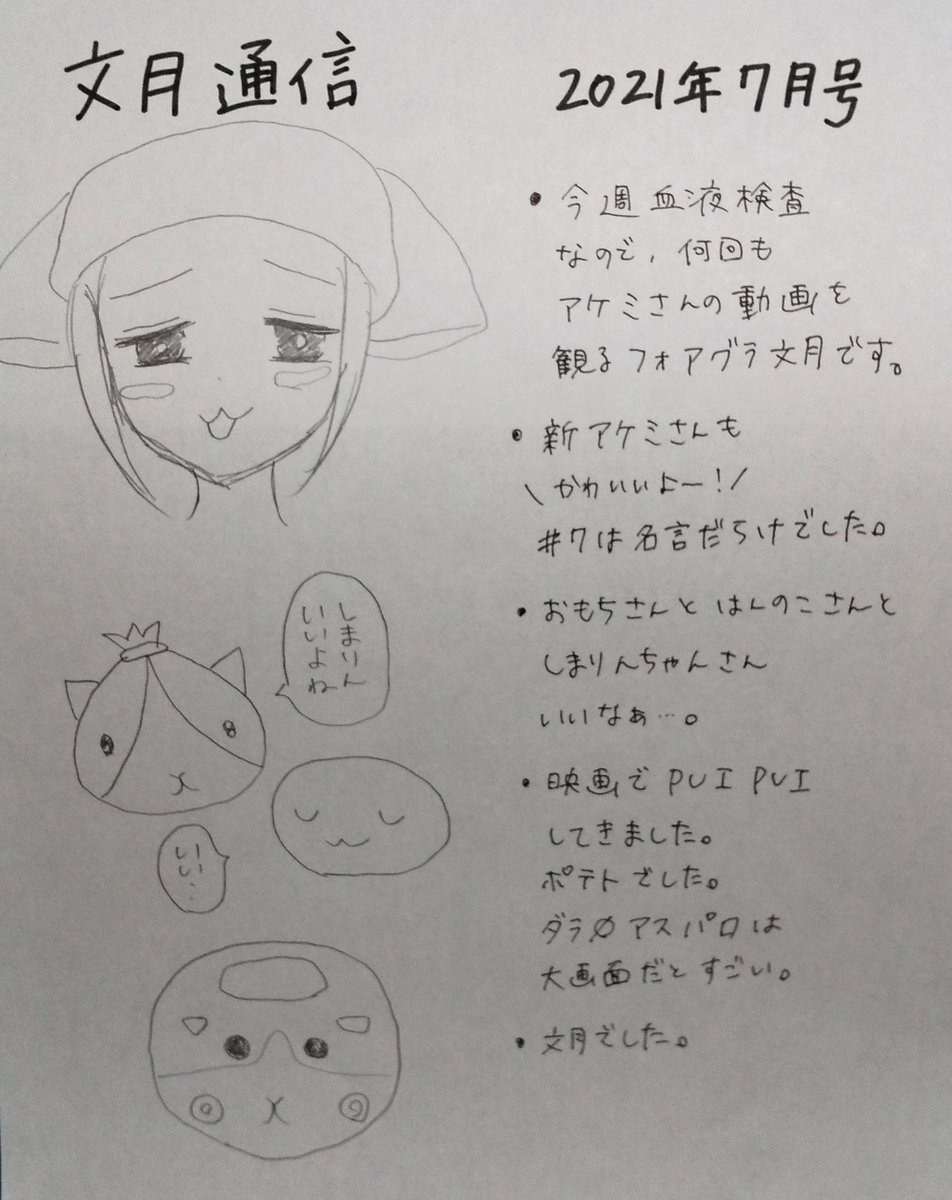 文月通信
2021年7月号
・今週血液検査
なので、何回も
アケミさんの動画を
観るフォアグラ文月です。
・新アケミさんも
\かわいいよー!/
#7は名言だらけでした。
・おもちさんとはんのこさんと
しまりんちゃんさん
いいなぁ…。
・映画でPUI PUI
してきました。
ポテトでした。
ダラ∅アスパロは
大画面だとすごい。
・文月でした。
しまりん
いいよね
いい…